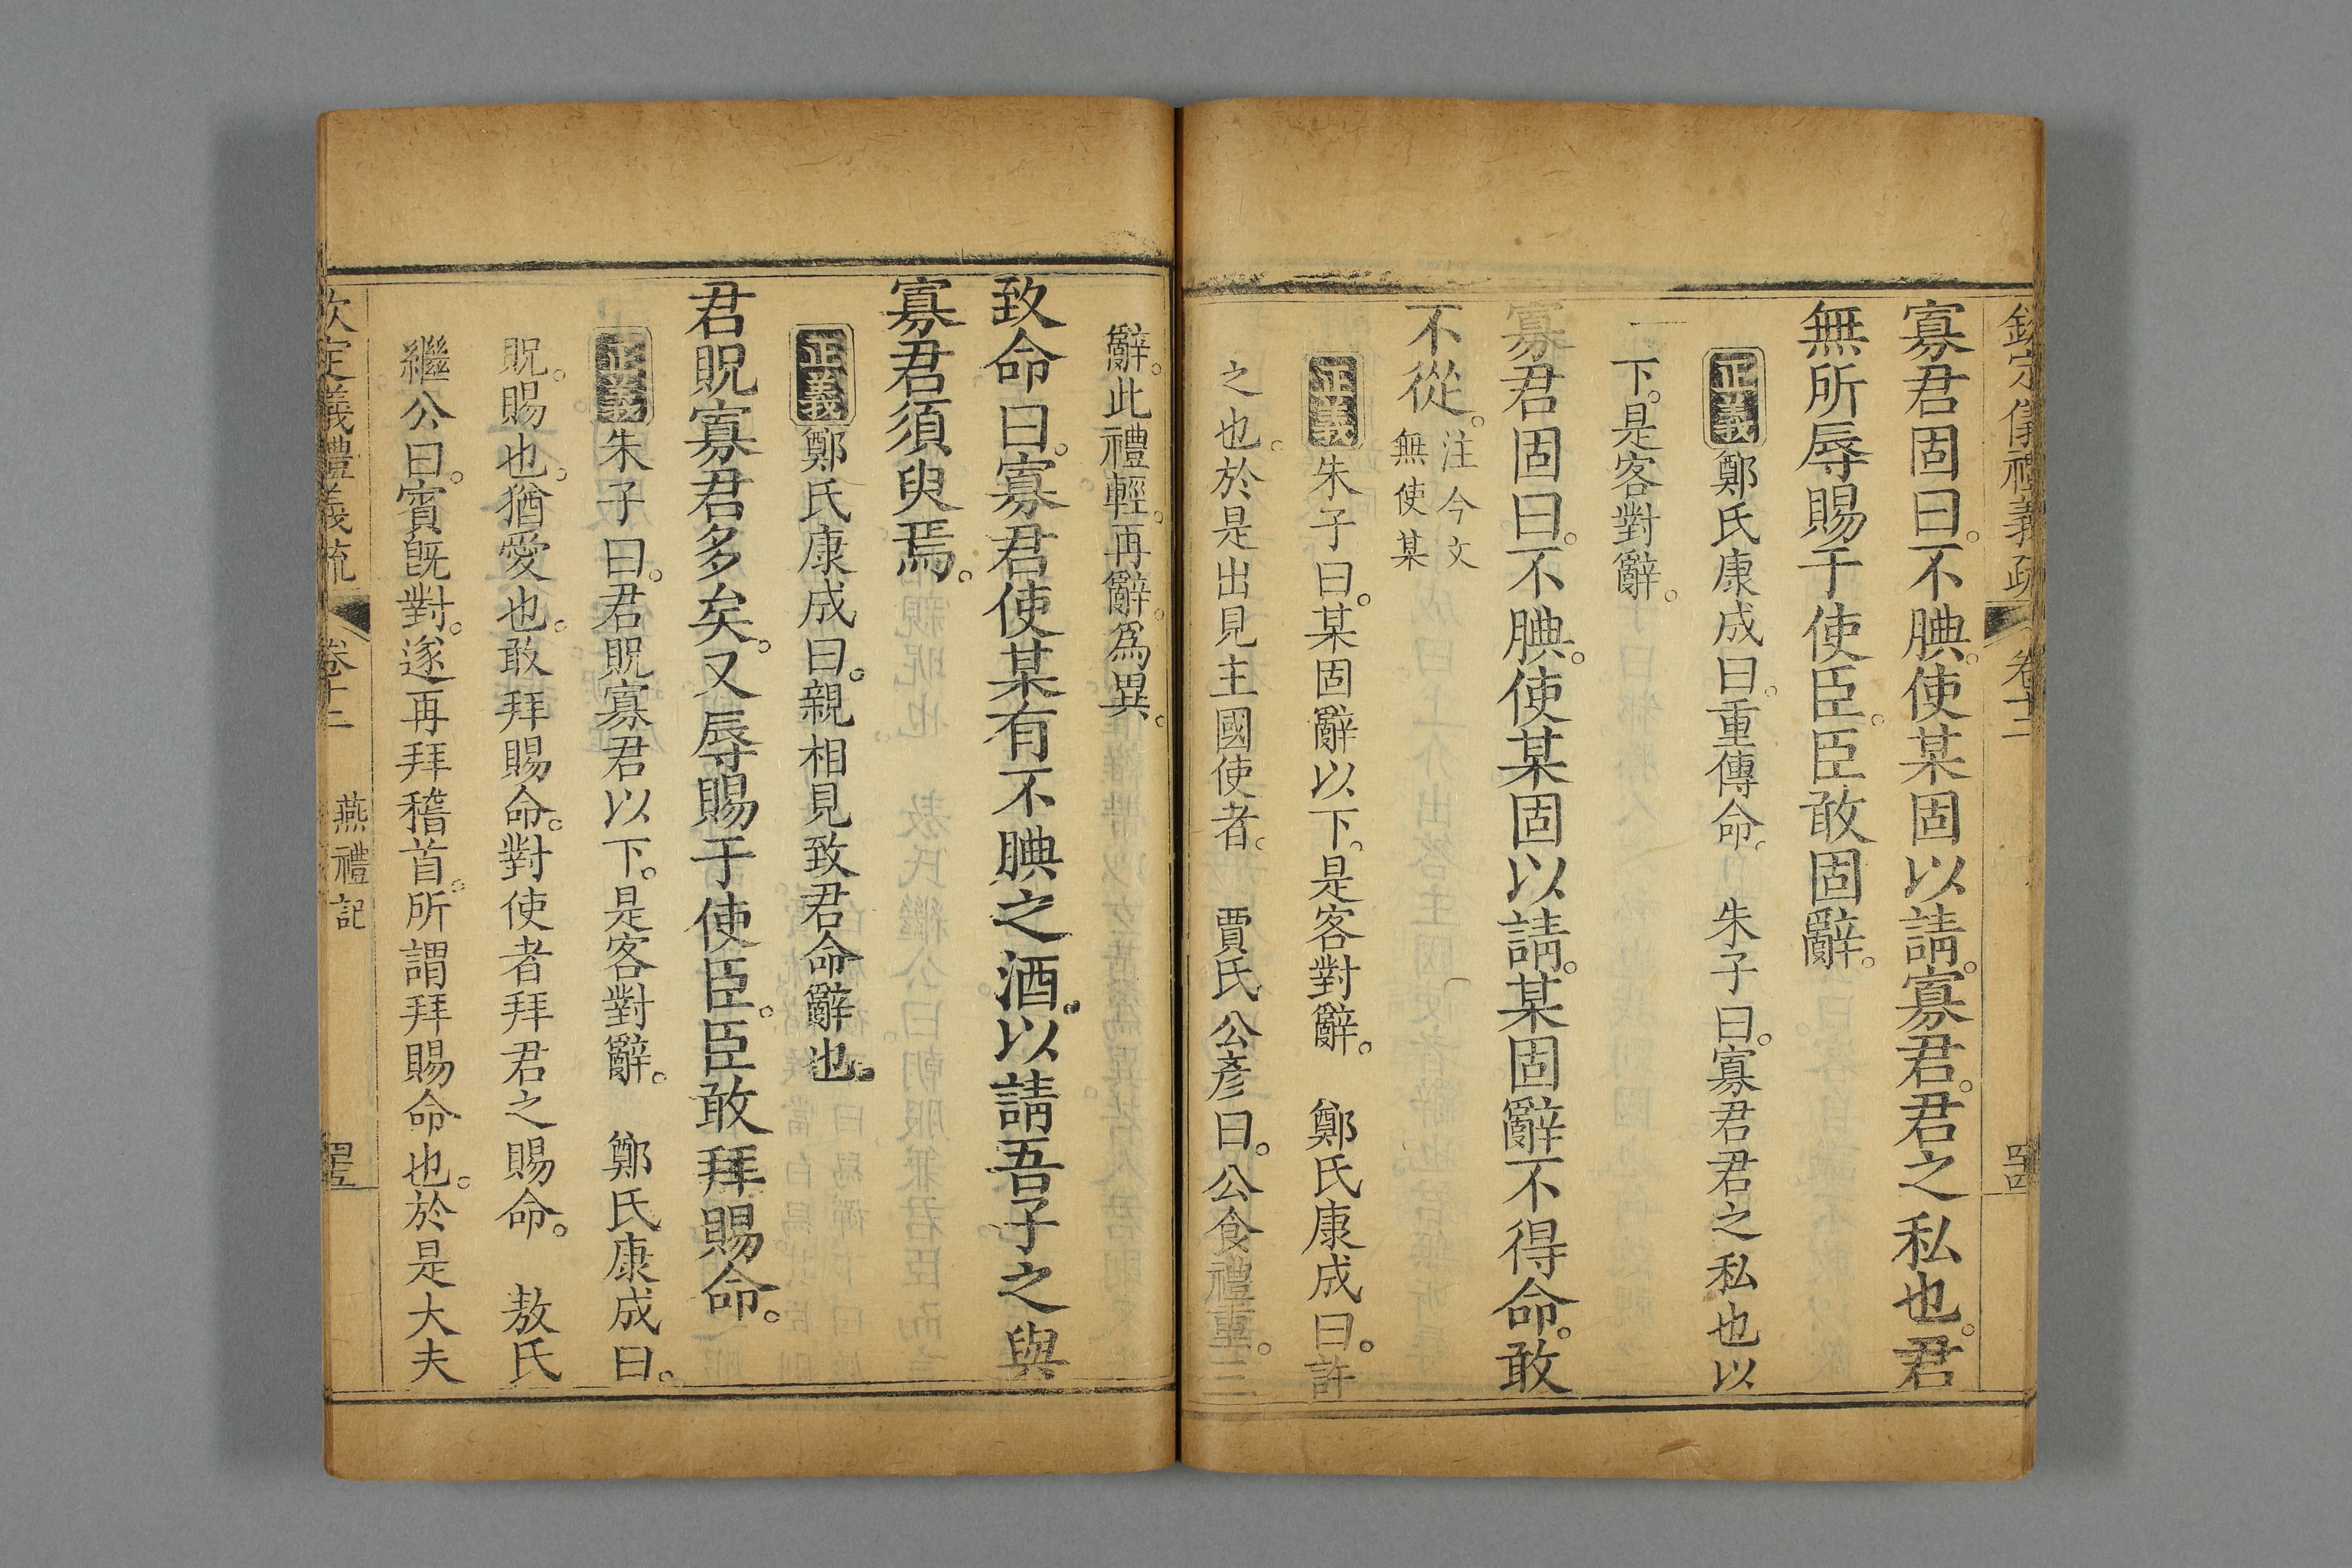 欽定儀禮義疏 卷十二 四
寡君固曰。不腆。使某固以請。寡君。君之私也。君
無所辱賜于使臣。臣敢固辭。
正義 鄭氏康成曰。重傳命。 朱子曰。寡君君之私也以
下。是客對辭。
寡君固曰。不腆。使某固以請。某固辭不得命。敢
不從。注今文
無使某
正義 朱子曰。某固辭以下。是客對辭。 鄭氏康成曰。許
之也。於是出見主國使者。 賈氏公彥曰。公食禮重。三
辭。此禮輕。再辭。為異。
致命曰。寡君使某有不腆之酒。以請吾子之與
寡君須臾焉。
正義 鄭氏康成曰。親相見致君命辭也。
君貺寡君多矣。又辱賜于使臣。臣敢拜賜命。
正義 朱子曰。君貺寡君以下。是客對辭。 鄭氏康成曰。
貺。賜也。猶愛也。敢拜賜命。對使者拜君之賜命。 敖氏
繼公曰。賓既對。遂再拜稽首。所謂拜賜命也。於是大夫
欽定儀禮義疏 卷十二 燕禮記